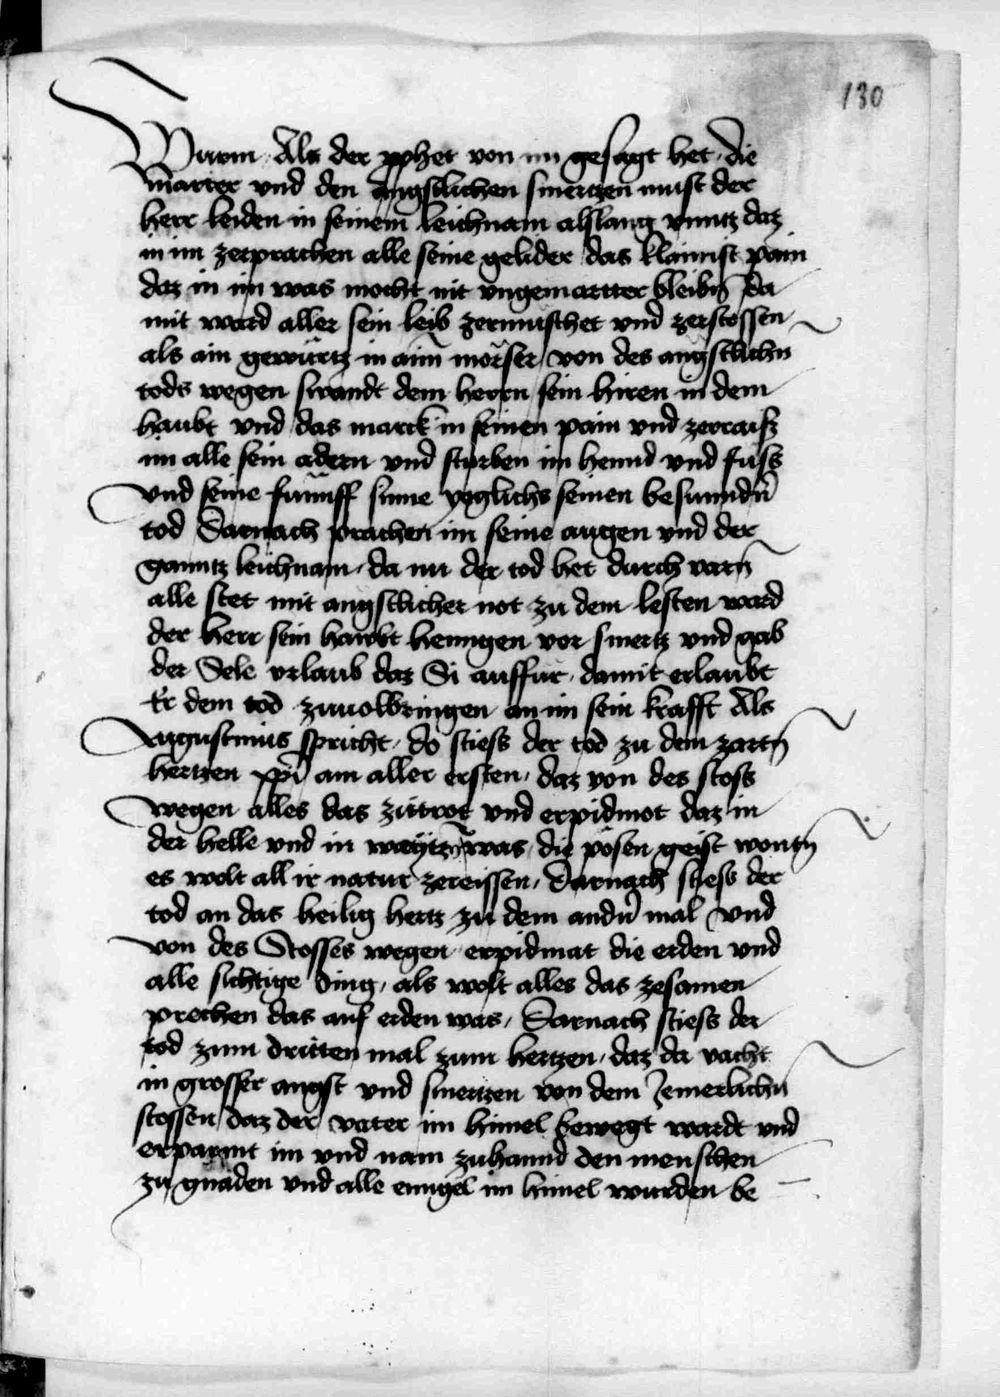 130
Wurm Als der pphet von im gesagt het die
marter vnd den angstlichen smertzen must der
herr leiden in seinem leichnam alslang vnntz daz
in im zerprachen alle seine gelider das klainist pain
daz in im was mocht nit vngemartter bleibn̄ Da
mit ward aller sein leib zermuschet vnd zerstossen
als ain gewürtz in aim̄ morser von des angstlichn̄
tods wegen swandt dem herrn sein hiren in dem
haubt vnd das marck in seinen pain vnd zerraisz
im alle sein adern vnd sturben im hennd vnd fuss
vnd seine funnff sinne yeglichs seinen besunndn̄
tod Darnach prachen im seine augen vnd der
ganntz leichnam da nu der tod het durch varn̄
alle stet mit angstlicher not zu dem lesten ward
der herr sein haubt henngen vor smertz vnd gab
der Sele vrlaub daz Si auffur damit erlaubt
Er dem tod zuuolbringen an im sein krafft Als
Augustinus spricht do stiess der tod zu dem zartn̄
hertzen xpī am aller ersten daz von des stoss
wegen alles das zittrot vnd erpidmot daz in
der helle vnd in was die pösen geist wontn̄
es wolt all ir natur zereissen Darnach stiess der
tod an das heilig hertz zu dem andn̄ mal vnd
von des Stosses wegen erpidmat die erden vnd
alle sichtige ding als wolt alles das zesamen
prechen das auf erden was Darnach stiess der
tod zum dritten mal zum hertzen daz da vacht
in grosser angst vnd smertzen von dem Jemerlichn̄
stossen daz der vater im himel bewegt wardt vnd
erparmt im vnd nam zuhannd den menschen
zu gnaden vnd alle enngel im himel wurden be